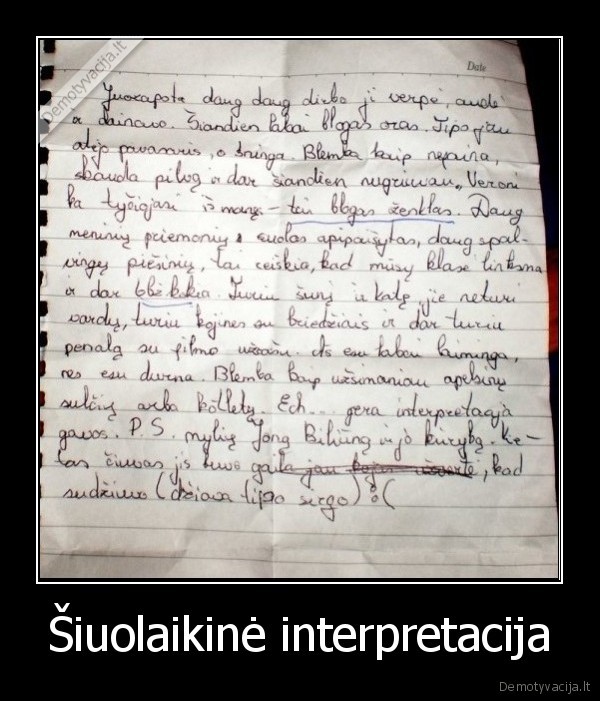 Demotyvacija.lt
Date
Juozapota daug daug dirbo ji verpė, audė
ir dainavo. Šiandien labai blogas oras. Tipo jau
atėjo pavasaris, o sninga. Blemba kaip nepaina,
skauda pilvą ir dar šiandien nugriuvau, Veroni
ka tyčiojasi iš manęs - tai blogas ženklas. Daug
meninių priemonių: suolas apipaišytas, daug spal-
vingų piešinių, tai reiškia, kad mūsų klasė linksma
ir dar blė kokia. Turiu šunį ir katę, jie neturi
vardų, turiu kojines su briedžiais ir dar turiu
penalą su filmo užrašu. Aš esu labai laiminga,
nes esu durna. Blemba kaip užsimaniau apelsinų
sulčių arba kotletų. Ech... gera interpretacija
gavos. P.S. myliu Joną Biliūną ir jo kūrybą. Ke-
tas čiuvas jis buvo gaila jau, kad
sudžiuvo (džiova tipo sirgo) :(
Šiuolaikinė interpretacija
Demotyvacija.lt